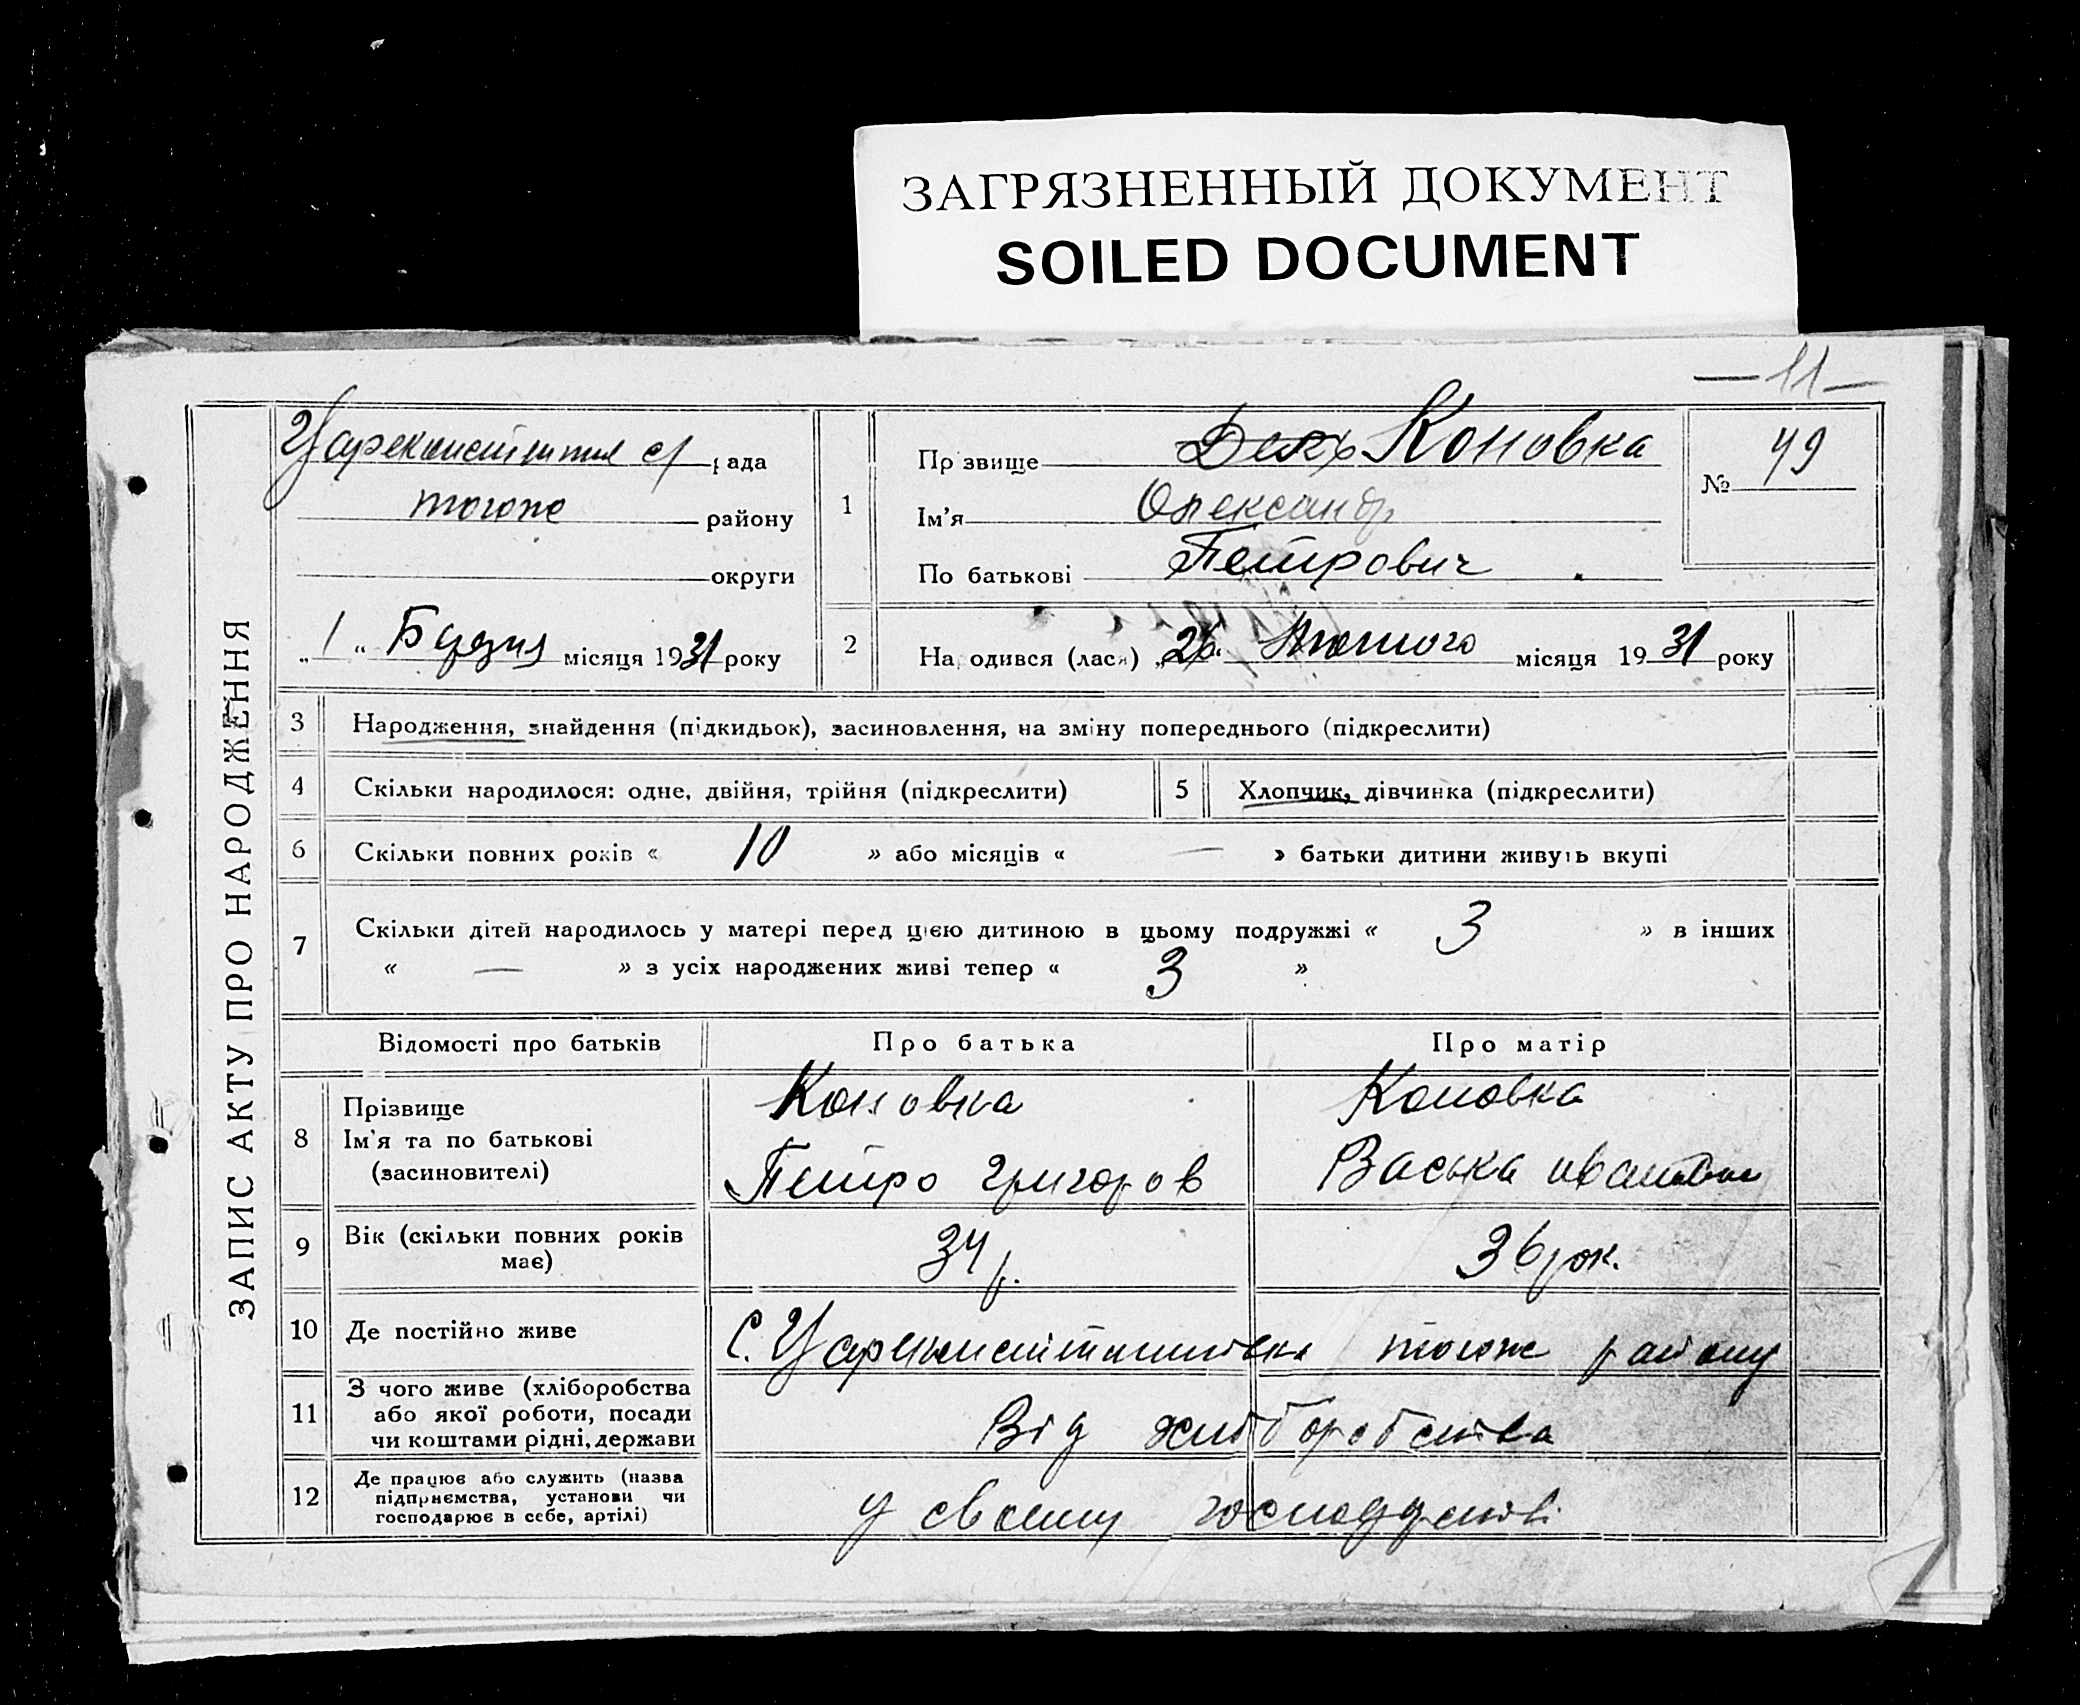 ЗАГРЯЗНЕННЫЙ ДОКУМЕНТ
SOILED DOCUMENT
— 11 —
ЗАПИС АКТУ ПРО НАРОДЖЕННЯ
рада
тогож району
округи
„ 1 “ Березня місяця 1931 року
1
Прізвище Коновка
Ім'я Олександр
По батькові Петрович
№ 49
2
Народився (лася) „ “ Лютого місяця 1931 року
3 Народження, знайдення (підкидьок), засиновлення, на зміну попереднього (підкреслити)
4 Скільки народилося: одне, двійня, трійня (підкреслити) 5 Хлопчик, дівчинка (підкреслити)
6 Скільки повних років « 10 » або місяців « — » батьки дитини живуть вкупі
7 Скільки дітей народилось у матері перед цією дитиною в цьому подружжі « 3 » в інших
« — » з усіх народжених живі тепер « 3 »
Відомості про батьків Про батька Про матір
8
Прізвище Коновка Коновка
Ім'я та по батькові
(засиновителі) Петро Григоров Васька
9 Вік (скільки повних років
має) 34 р. 36 рок.
10 Де постійно живе С. Царекостянтинівка тогож району
11 З чого живе (хліборобства
або якої роботи, посади
чи коштами рідні, держави Від хліборобства
12 Де працює або служить (назва
підприємства, установи чи
господарює в себе, артілі) у своєму господарстві